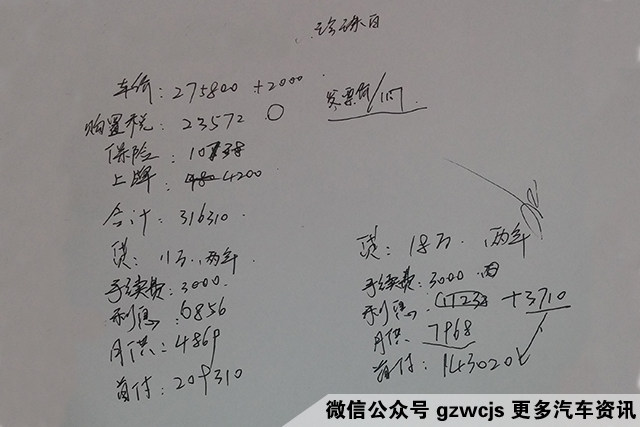 珍珠白
车价: 275800 +2000
发票价/117
购置税: 23572
保险: 10738
上牌: 480 4200
合计: 316310
贷: 11万. 两年
手续费: 3000
利息: 6856
月供: 4869
首付: 209310
贷: 18万. 两年
手续费: 3000
利息: 11238 +3710
月供: 7968
首付: 143020
微信公众号 gzwcjs 更多汽车资讯